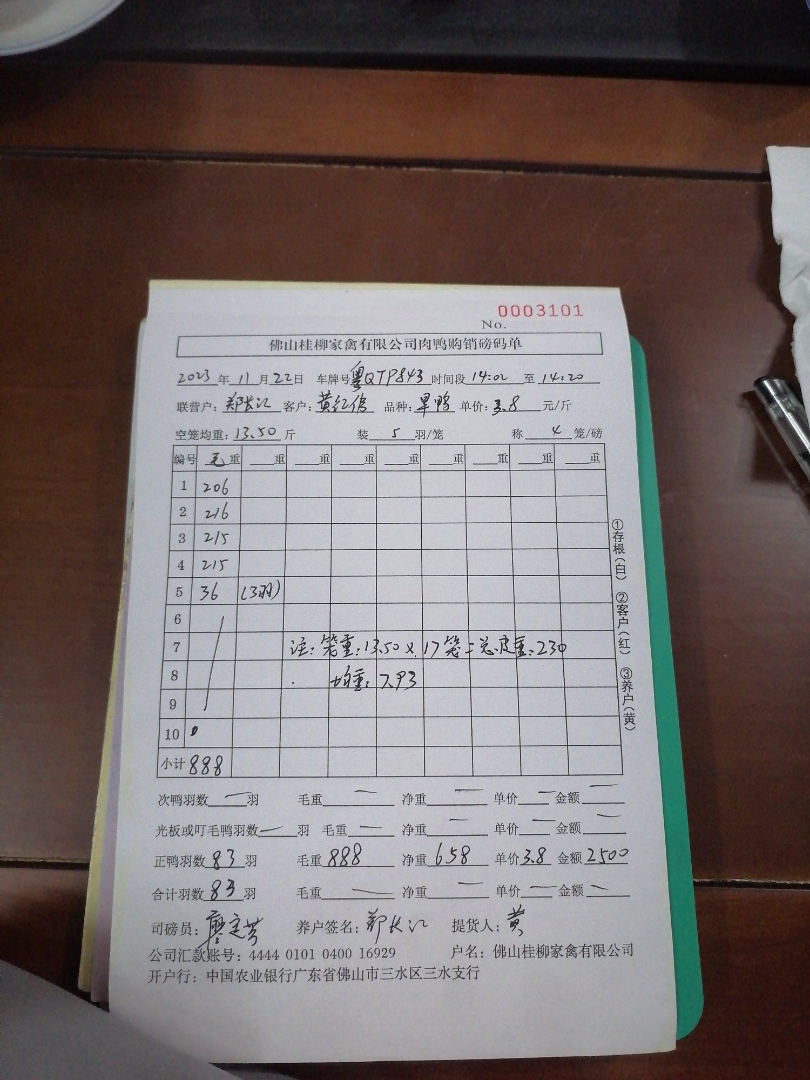 0003101
No.
佛山桂柳家禽有限公司肉鸭购销磅码单
2023 年 11 月 22 日 车牌号 粤QTP843 时间段 14:02 至 14:20
联营户: 郑长江 客户: 黄 品种: 旱鸭 单价: 3.8 元/斤
空笼均重: 13.50 斤 装 5 羽/笼 称 4 笼/磅
编号 毛重 重 重 重 重 重 重 重 重
1 206
2 216
3 215
4 215
5 36 (3羽)
6
7 注: 笼重: 13.50 x 17 笼 = 总皮重: 230
8 均重: 7.93
9
10
小计 888
①存根(白) ②客户(红) ③养户(黄)
次鸭羽数 — 羽 毛重 — 净重 — 单价 — 金额 —
光板或叮毛鸭羽数 — 羽 毛重 — 净重 — 单价 — 金额 —
正鸭羽数 83 羽 毛重 888 净重 658 单价 3.8 金额 2500
合计羽数 83 羽 毛重 — 净重 — 单价 — 金额 —
司磅员: 养户签名: 郑长江 提货人: 黄
公司汇款账号: 4444 0101 0400 16929 户名: 佛山桂柳家禽有限公司
开户行: 中国农业银行广东省佛山市三水区三水支行